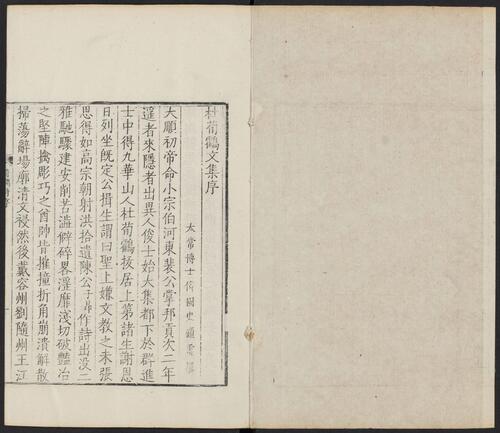 杜荀鶴文集序
太常博士脩國史顧雲撰
大順初帝命小宗伯河東裴公掌邦貢次二年
遥者來隱者出異人俊士始大集都下於群進
士中得九華山人杜荀鶴拔居上第諸生謝恩
日列坐旣定公揖生謂曰聖上嫌文教之未張
思得如高宗朝射洪拾遺陳公子昂作詩出没二
雅馳驟建安削苦澁僻碎畧淫靡淺切破艷冶
之堅陣擒彫巧之酋帥皆摧撞折角崩潰解散
掃蕩辭場廓清文祲然後戴容州劉隨州王江